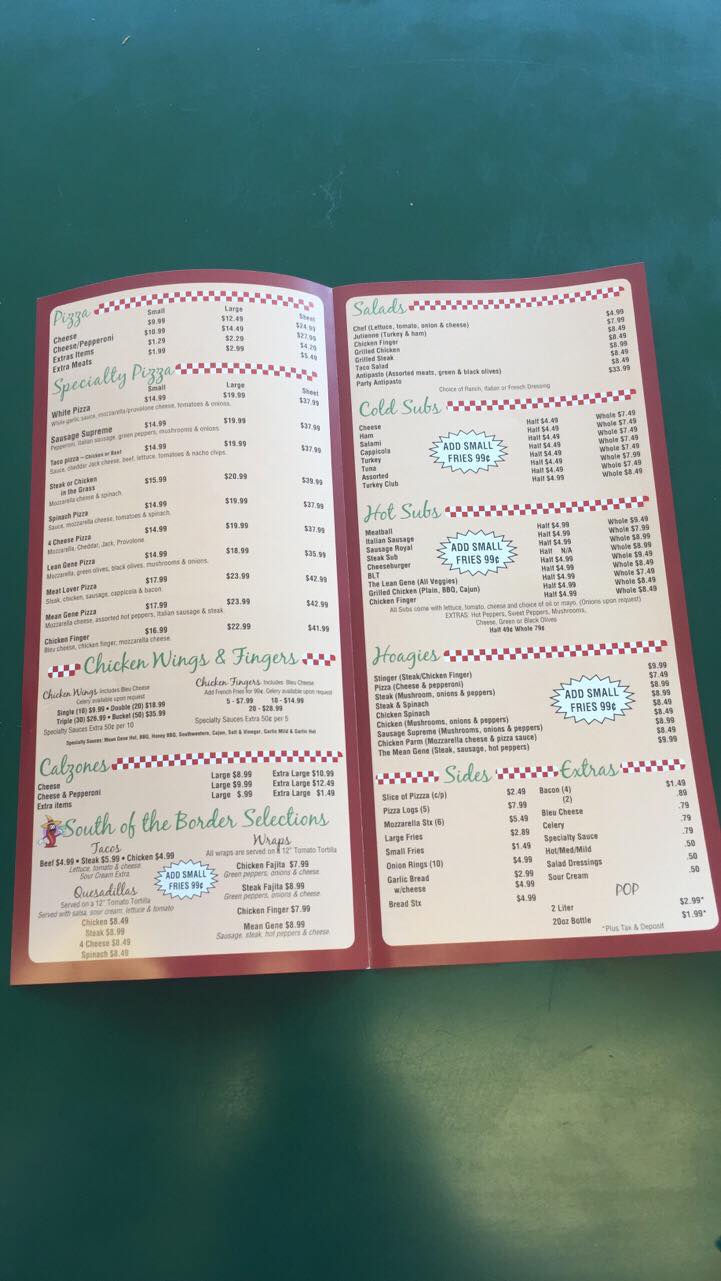 Pizza
Small Large Sheet
Cheese $9.99 $12.49 $24.99
Cheese/Pepperoni $10.99 $14.49 $27.99
Extras Items $1.29 $2.29 $4.20
Extra Meats $1.99 $2.99 $5.49
Specialty Pizza
Small Large Sheet
White Pizza $14.99 $19.99 $37.99
White garlic sauce, mozzarella/provolone cheese, tomatoes & onions.
Sausage Supreme $14.99 $19.99 $37.99
Pepperoni, Italian sausage, green peppers, mushrooms & onions.
Taco pizza – Chicken or Beef $14.99 $19.99 $37.99
Sauce, cheddar Jack cheese, beef, lettuce, tomatoes & nacho chips.
Steak or Chicken
in the Grass $15.99 $20.99 $39.99
Mozzarella cheese & spinach.
Spinach Pizza $14.99 $19.99 $37.99
Sauce, mozzarella cheese, tomatoes & spinach.
4 Cheese Pizza $14.99 $19.99 $37.99
Mozzarella, Cheddar, Jack, Provolone
Lean Gene Pizza $14.99 $18.99 $35.99
Mozzarella, green olives, black olives, mushrooms & onions.
Meat Lover Pizza $17.99 $23.99 $42.99
Steak, chicken, sausage, cappicola & bacon.
Mean Gene Pizza $17.99 $23.99 $42.99
Mozzarella cheese, assorted hot peppers, Italian sausage & steak
Chicken Finger $16.99 $22.99 $41.99
Bleu cheese, chicken finger, mozzarella cheese.
Chicken Wings & Fingers
Chicken Wings Includes Bleu Cheese
Celery available upon request
Single (10) $9.99 • Double (20) $18.99
Triple (30) $26.99 • Bucket (50) $35.99
Specialty Sauces Extra 50¢ per 10
Chicken Fingers Includes: Bleu Cheese.
Add French Fries for 99¢. Celery available upon request
5 - $7.99 10 - $14.99
20 - $28.99
Specialty Sauces Extra 50¢ per 5
Specialty Sauces: Mean Gene Hot, BBQ, Honey BBQ, Southwestern, Cajun, Salt & Vinegar, Garlic Mild & Garlic Hot
Calzones
Cheese Large $8.99 Extra Large $10.99
Cheese & Pepperoni Large $9.99 Extra Large $12.49
Extra items Large $.99 Extra Large $1.49
South of the Border Selections
Tacos
Beef $4.99 • Steak $5.99 • Chicken $4.99
Lettuce, tomato & cheese.
Sour Cream Extra.
Quesadillas
Served on a 12" Tomato Tortilla
Served with salsa, sour cream, lettuce & tomato
Chicken $8.49
Steak $8.99
4 Cheese $8.49
Spinach $8.49
ADD SMALL
FRIES 99¢
Wraps
All wraps are served on a 12" Tomato Tortilla
Chicken Fajita $7.99
Green peppers, onions & cheese.
Steak Fajita $8.99
Green peppers, onions & cheese.
Chicken Finger $7.99
Mean Gene $8.99
Sausage, steak, hot peppers & cheese.
Salads
Chef (Lettuce, tomato, onion & cheese) $4.99
Julienne (Turkey & ham) $7.99
Chicken Finger $8.49
Grilled Chicken $8.49
Grilled Steak $8.99
Taco Salad $8.49
Antipasto (Assorted meats, green & black olives) $8.49
Party Antipasto $33.99
Choice of Ranch, Italian or French Dressing
Cold Subs
Cheese Half $4.49 Whole $7.49
Ham Half $4.49 Whole $7.49
Salami Half $4.49 Whole $7.49
Cappicola Half $4.49 Whole $7.49
Turkey Half $4.49 Whole $7.49
Tuna Half $4.49 Whole $7.99
Assorted Half $4.49 Whole $7.49
Turkey Club Half $4.99 Whole $8.49
ADD SMALL
FRIES 99¢
Hot Subs
Meatball Half $4.99 Whole $9.49
Italian Sausage Half $4.99 Whole $7.99
Sausage Royal Half $4.99 Whole $8.99
Steak Sub Half N/A Whole $8.99
Cheeseburger Half $4.99 Whole $9.49
BLT Half $4.99 Whole $8.49
The Lean Gene (All Veggies) Half $4.99 Whole $7.49
Grilled Chicken (Plain, BBQ, Cajun) Half $4.99 Whole $8.49
Chicken Finger Half $4.99 Whole $8.49
ADD SMALL
FRIES 99¢
All Subs come with lettuce, tomato, cheese and choice of oil or mayo. (Onions upon request)
EXTRAS: Hot Peppers, Sweet Peppers, Mushrooms,
Cheese, Green or Black Olives
Half 49¢ Whole 79¢
Hoagies
Stinger (Steak/Chicken Finger) $9.99
Pizza (Cheese & pepperoni) $7.49
Steak (Mushroom, onions & peppers) $8.99
Steak & Spinach $8.99
Chicken Spinach $8.99
Chicken (Mushrooms, onions & peppers) $8.99
Sausage Supreme (Mushrooms, onions & peppers) $8.99
Chicken Parm (Mozzarella cheese & pizza sauce) $8.49
The Mean Gene (Steak, sausage, hot peppers) $9.99
ADD SMALL
FRIES 99¢
Sides
Slice of Pizzza (c/p) $2.49
Pizza Logs (5) $7.99
Mozzarella Stx (6) $5.49
Large Fries $2.89
Small Fries $1.49
Onion Rings (10) $4.99
Garlic Bread $2.99
w/cheese $4.99
Bread Stx $4.99
Extras
Bacon (4) $1.49
(2) .89
Bleu Cheese .79
Celery .79
Specialty Sauce .79
Hot/Med/Mild .50
Salad Dressings .50
Sour Cream .50
POP
2 Liter $2.99*
20oz Bottle $1.99*
*Plus Tax & Deposit